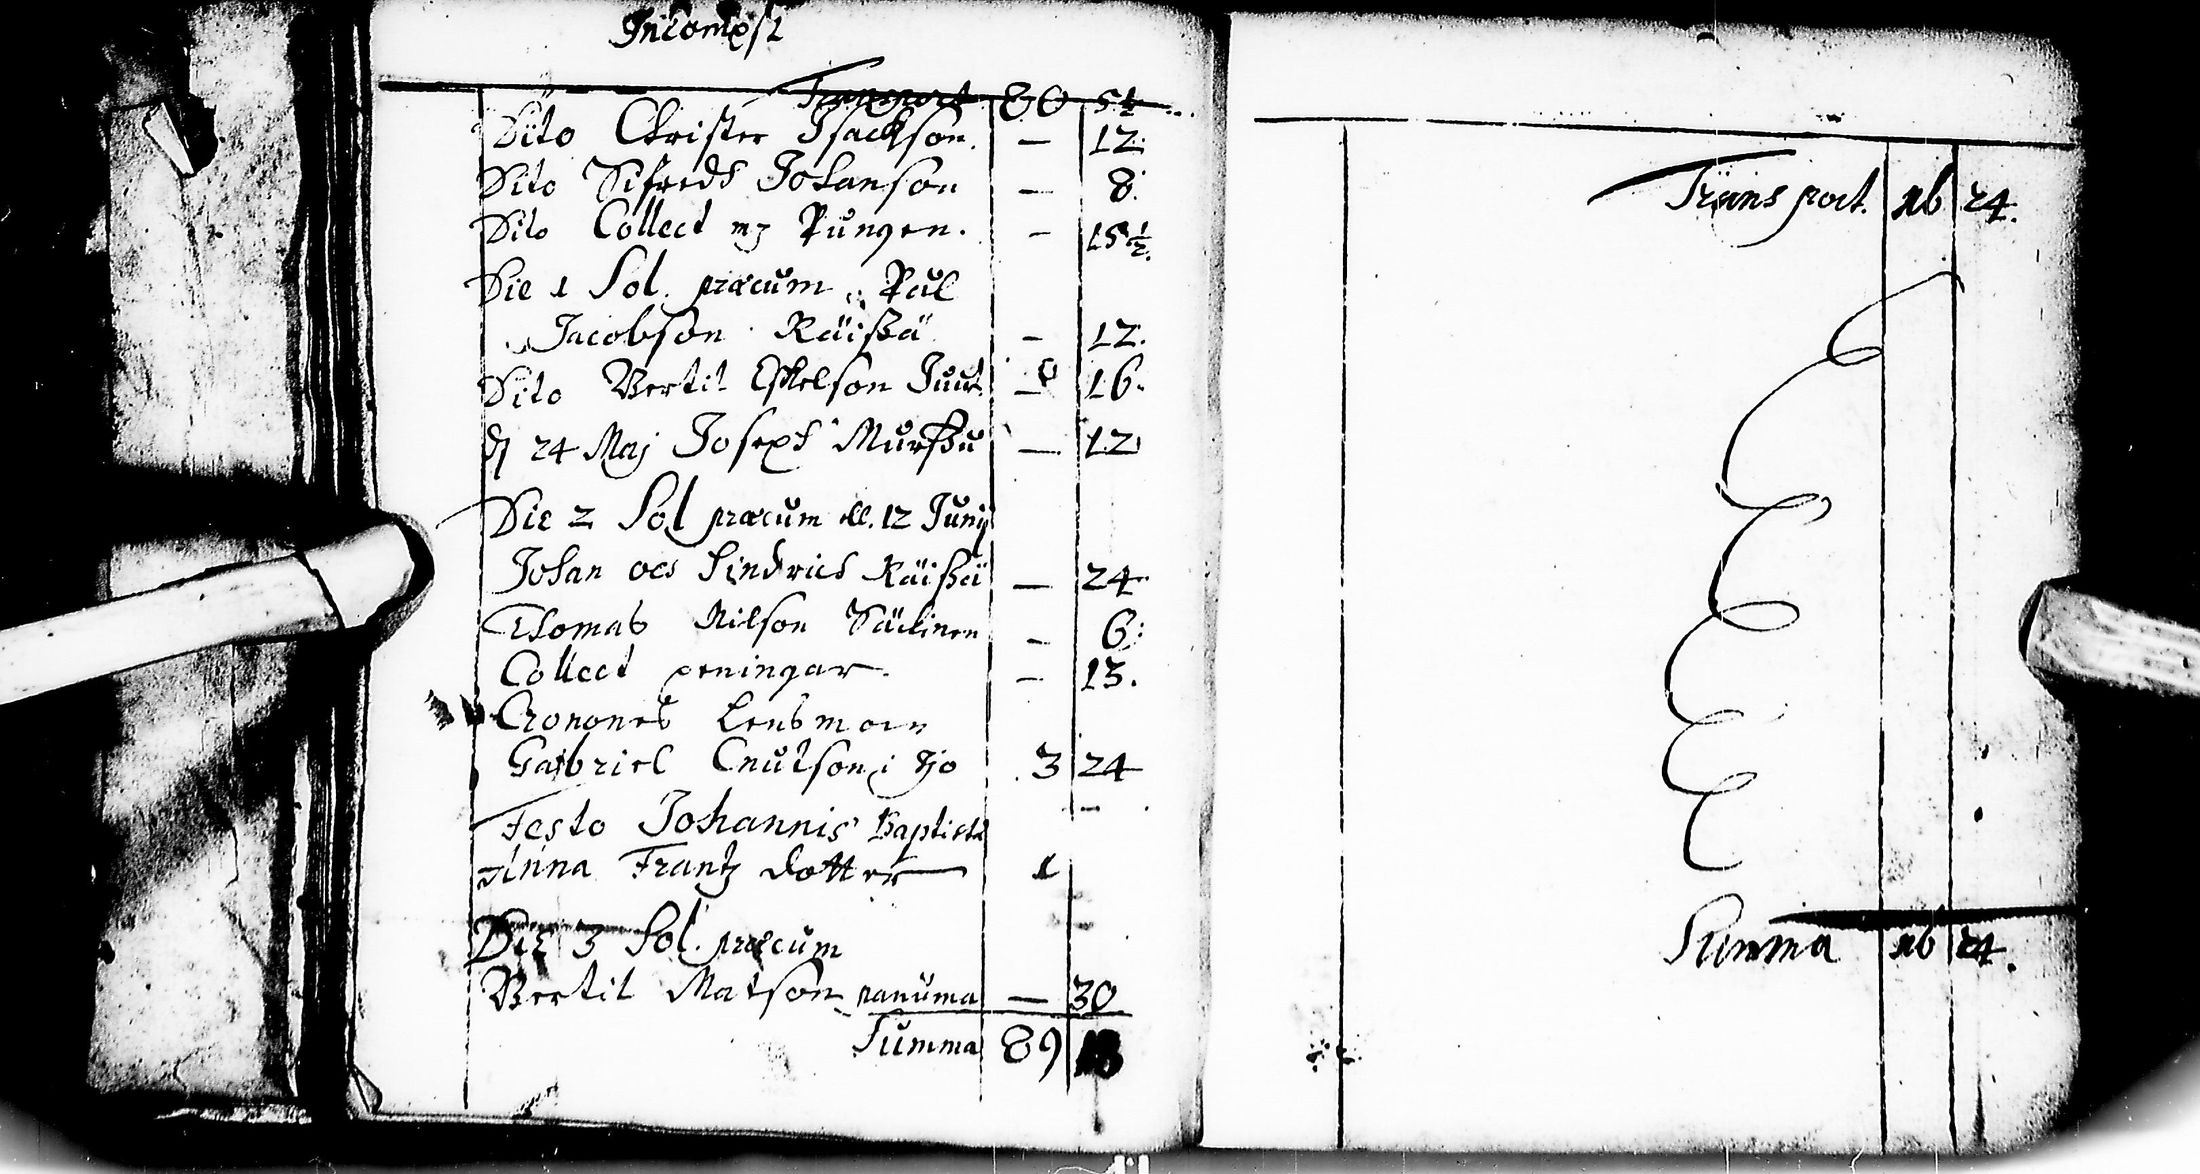 Incompst
Transport 80 5½
Dito Christer Isackson. — 12.
Dito Sifredh Johanson — 8.
Dito Collect mz Pungen. — 15½.
Die 1 Sol. præcum Pål
Jacobson Räisßä — 12.
Dito Bertil Eskelson Juut. — 16.
24 Maj Joseph Mursßu — 12
Die 2 Sol præcum ell. 12 Junij
Johan och Hindrich Räisßä — 24.
Thomas Nilson Säckinen — 6.
Collect peningar. — 13.
Crononnes Lensman
Gabriel Cnutson i 3 24
Festo Johannis Baptistæ —
Anna Frantz dotter 1
Die 3 Sol. præcum
Bertil Matson panuma — 30
Summa 89 18
Transport. 24.
Summa 24.